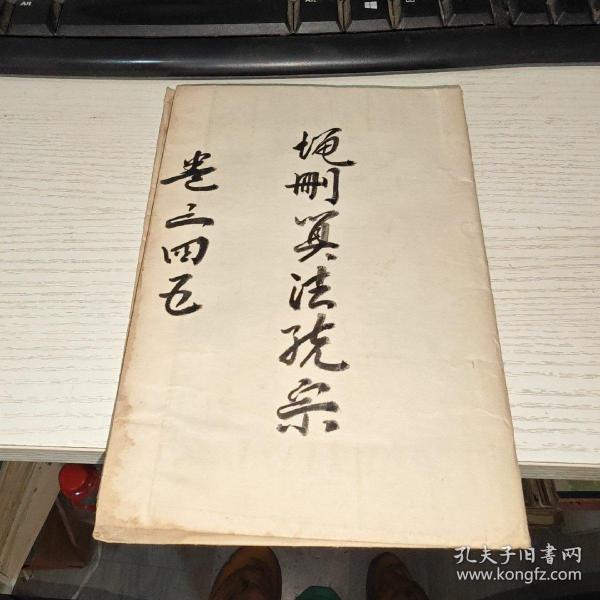 增刪算法統宗
卷三四五
孔夫子旧書网
www.kongfz.com